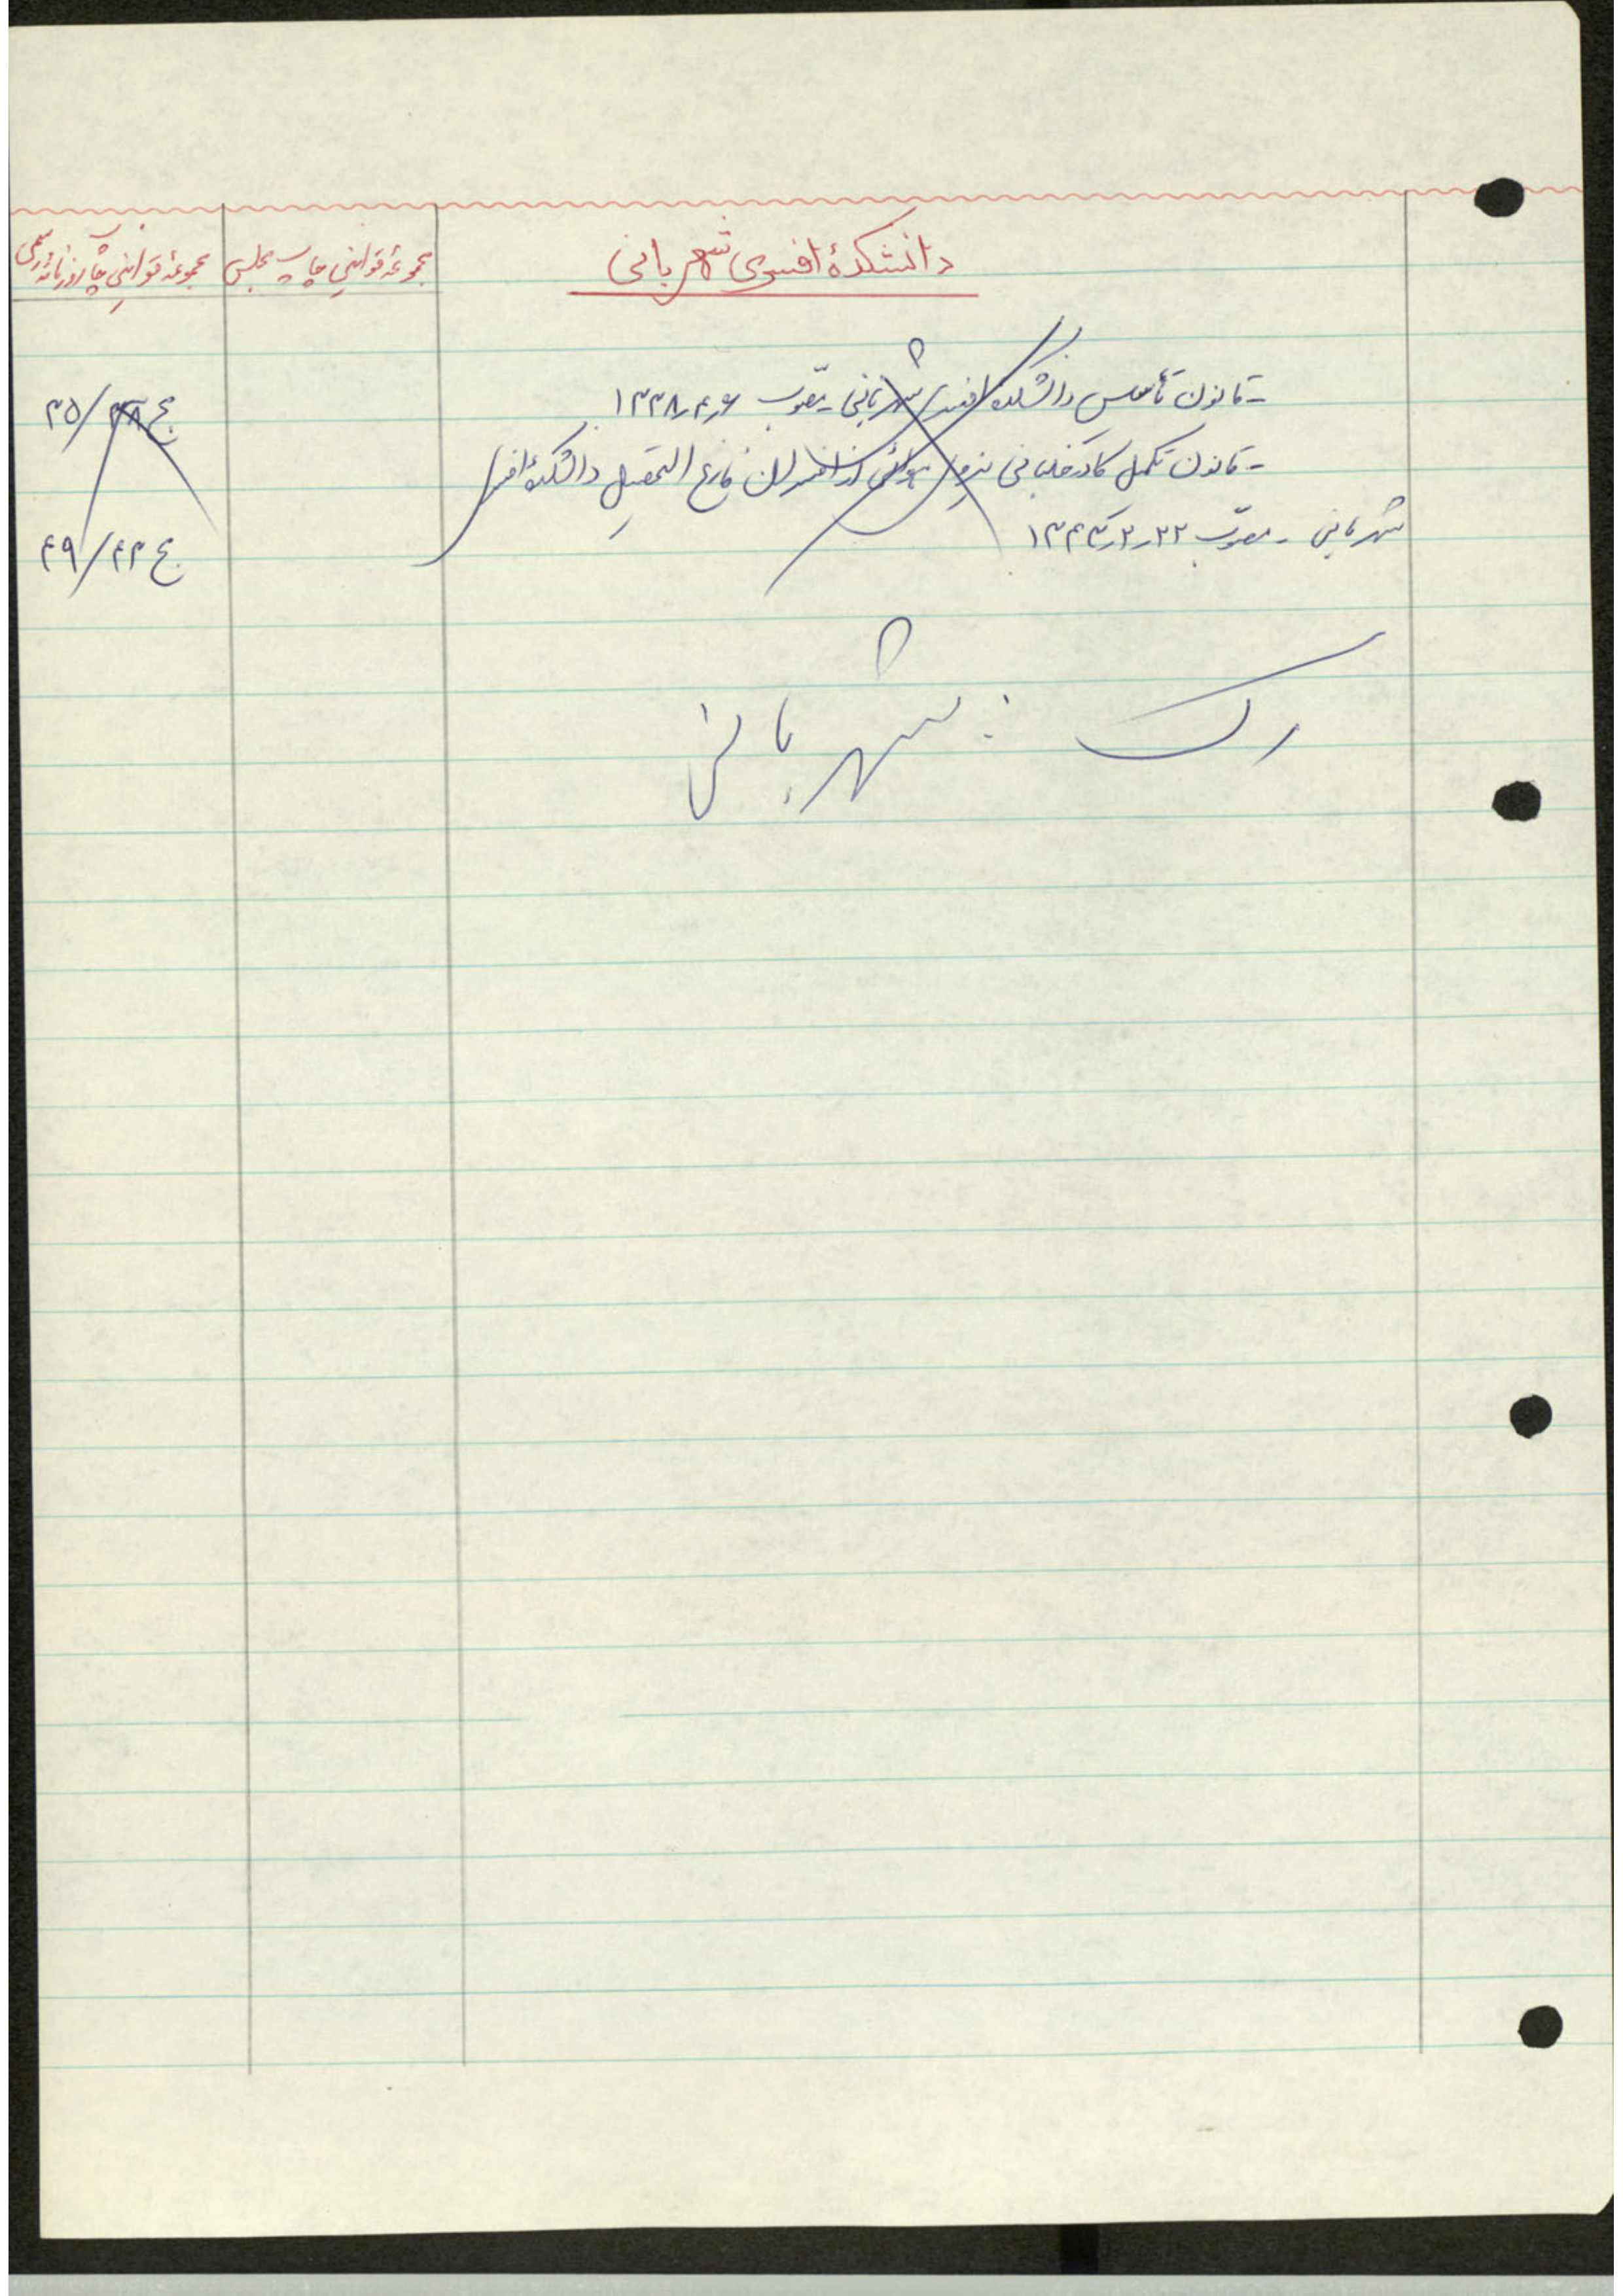 دانشکدهٔ افسری شهربانی
مجموعهٔ قوانین چاپ مجلس
مجموعهٔ قوانین چاپ روزنامهٔ رسمی
- قانون تأسیس دانشکده افسری شهربانی مصوب ۱۳۳۸٫۴٫۶
ج ۳۸/۳۵
- قانون تکمیل کادر خلبانی نیروی هوائی از افسران فارغ التحصیل دانشکدهٔ افسری
شهربانی - مصوّب
ج ۴۳/۴۹
رک : شهربانی